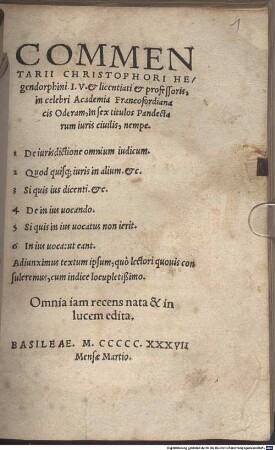 1
COMMEN
TARII CHRISTOPHORI HE/
gendorphini. I. V. & licentiati & professoris,
in celebri Academia Francofordiana
cis Oderam, in sex titulos Pandecta
rum iuris ciuilis, nempe.
1 De iurisdictione omnium iudicum.
2 Quod quisq; iuris in alium. &c.
3 Si quis ius dicenti. &c.
4 De in ius uocando.
5 Si quis in ius uocatus non ierit.
6 In ius uocati ut eant.
Adiunximus textum ipsum, quò lectori quouis con
suleremus, cum indice locupletißimo.
Omnia iam recens nata & in
lucem edita.
BASILEAE. M. CCCCC. XXXVII
Mense Martio.